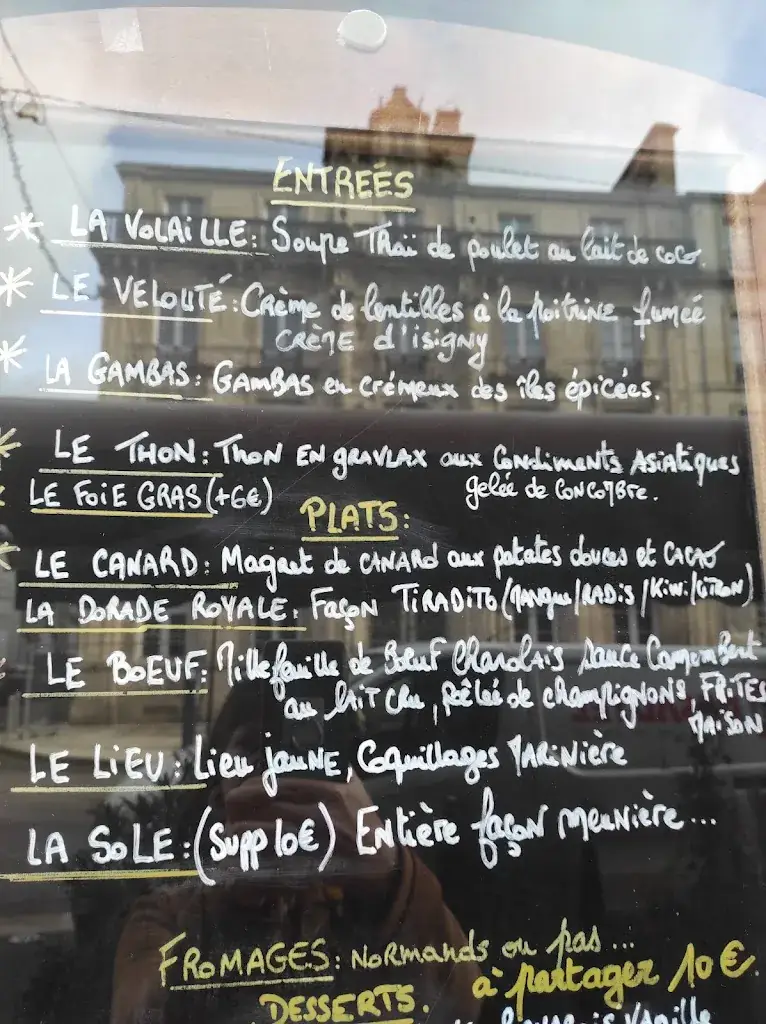 ENTREÉS
* LA VOLAILLE: Soupe Thaï de poulet au lait de coco.
* LE VELOUTÉ: Crème de lentilles à la poitrine fumée
CRÈME d'isigny
* LA GAMBAS: GAMBAS en crémeux des îles épicées.
* LE THON: THON EN gRAVLAX aux CondiMENTS ASiatiques
gelée de CONCOMBre.
LE FOIE GRAS (+6€)
PLATS:
* LE CANARD: Magret de CANARD aux patates douces et CACAO
LA DORADE ROYALE: Façon TIRADITO (MANgue/RADiS/Kiwi/CiTRON)
LE BOEUF: Millefeuille de Bœuf CharolAis sauce CamemBert
au lAiT CRu, poêlée de champignons, FRiTES
MAiSON
LE LIEU: Lieu jauNE, Coquillages MARiNière
LA SOLE: (Supp 10€) Entière façon meuNière...
FROMAGES: NoRmands ou pas...
à partager 10€.
DESSERTS.
Vanille